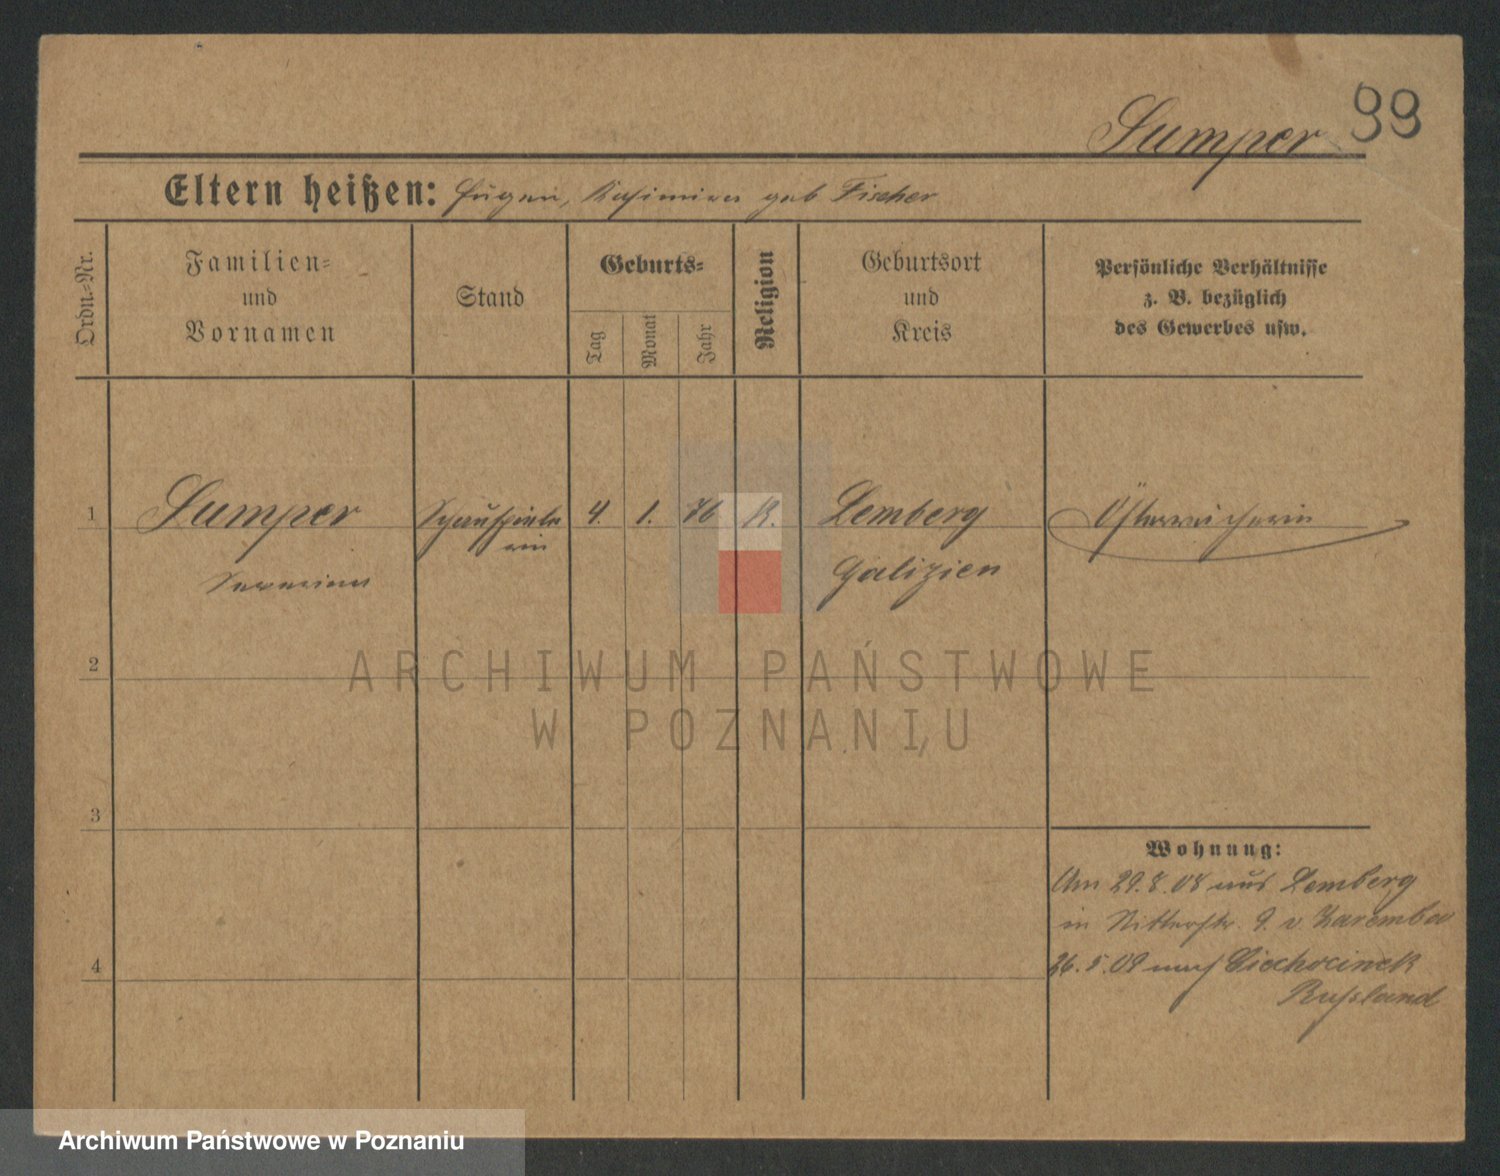 Sumper 99
Eltern heißen: Eugen, Kasimira geb Fischer
Ordn.-Nr.
Familien-
und
Vornamen
Stand
Geburts-
Tag
Monat
Jahr
Religion
Geburtsort
und
Kreis
Persönliche Verhältnisse
z. B. bezüglich
des Gewerbes usw.
1 Sumper Schauspiele 4. 1. 76 K. Lemberg Österreicherin
rin
Severina Galizien
2
ARCHIWUM PAŃSTWOWE
W POZNANIU
3
Wohnung:
Am 29.8.08 aus Lemberg
in Ritterstr. 9. v Zaremba
4
26.5.09 nach Ciechocinek
Russland
Archiwum Państwowe w Poznaniu